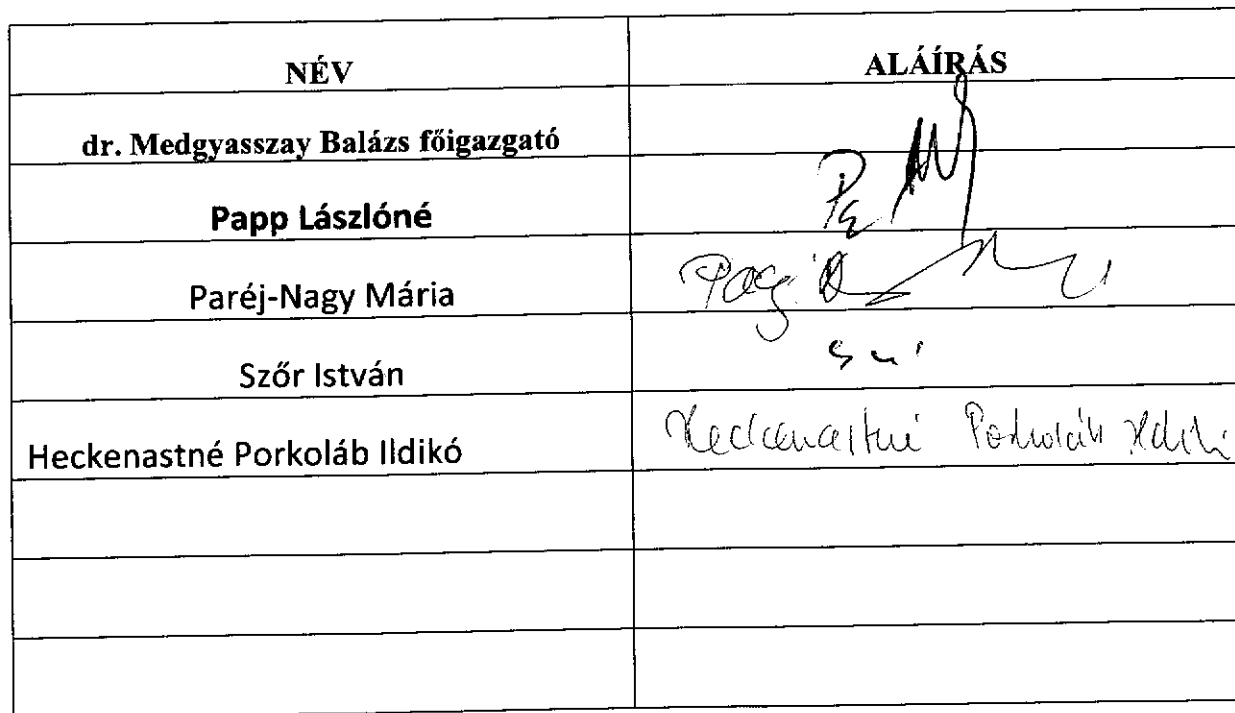 NÉV ALÁÍRÁS
dr. Medgyasszay Balázs főigazgató
Papp Lászlóné
Paréj-Nagy Mária
Szőr István
Heckenastné Porkoláb Ildikó Heckenastné Porkoláb Ildikó